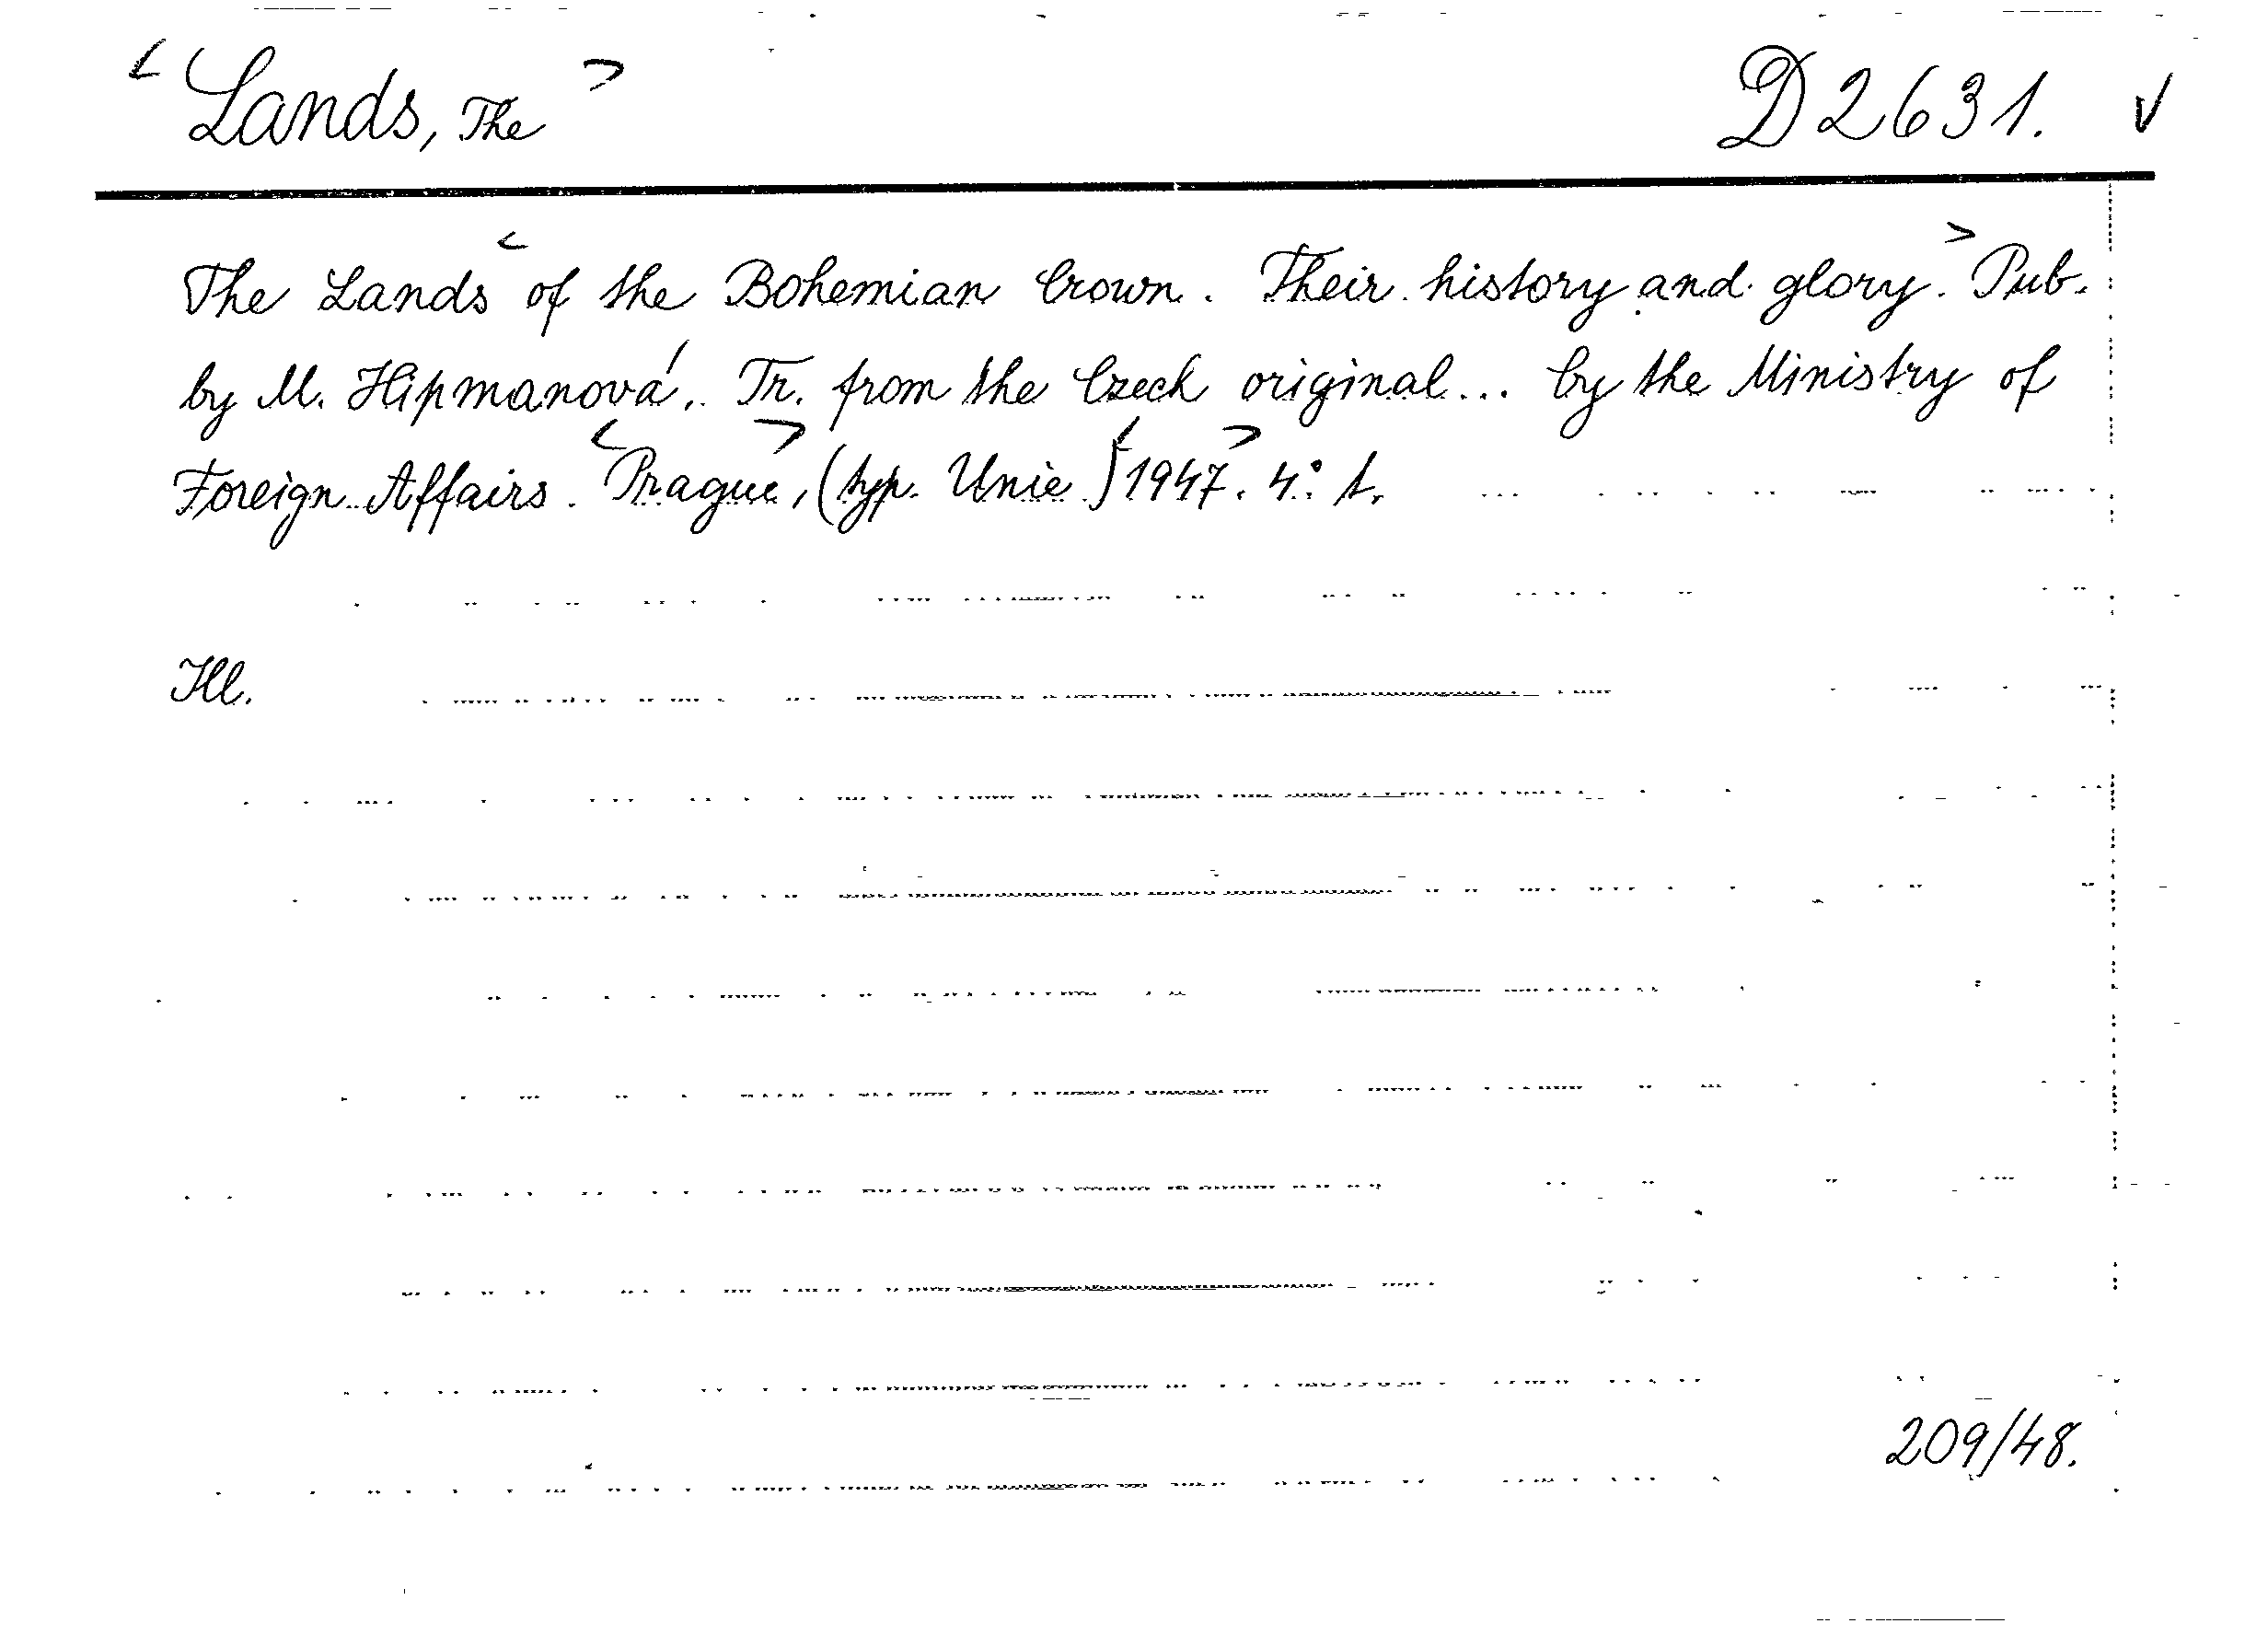 <Lands, The> D 2631. √
The Lands <of the Bohemian Crown. Their history and glory.> Pub.
by M. Hipmanová. Tr. from the Czech original... by the Ministry of
Foreign Affairs. <Prague>, (typ. Unie) <1947>. 4° t.
Ill.
209/48.